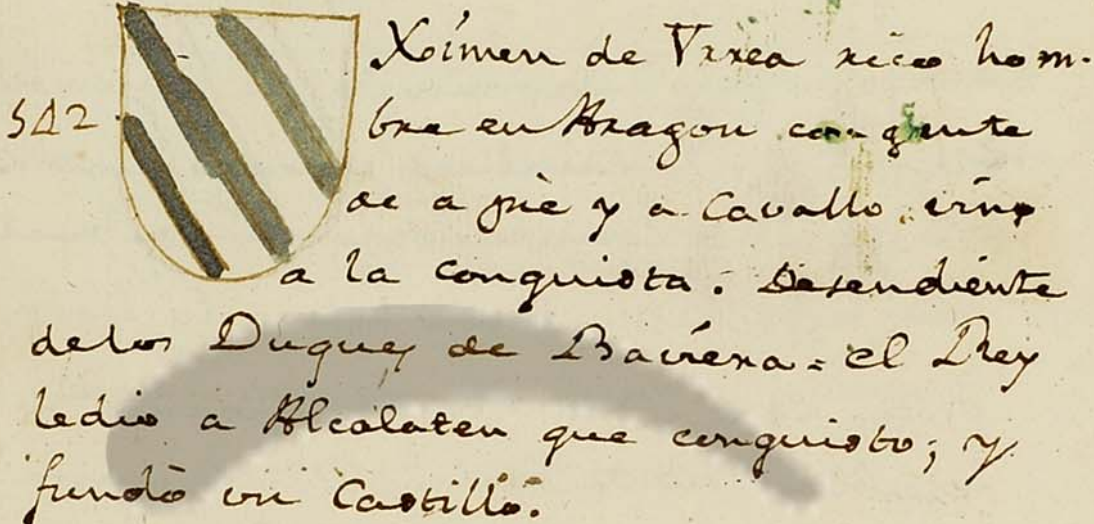 Xoimen de Vrrea rico hom-
542 bre en Aragon con gente
de a piè y a Cavallo vino
a la conquista. Desendiente
delos Duques de Baviera = el Rey
ledio a Alcalaten que conquisto; y
fundò un Castillo.